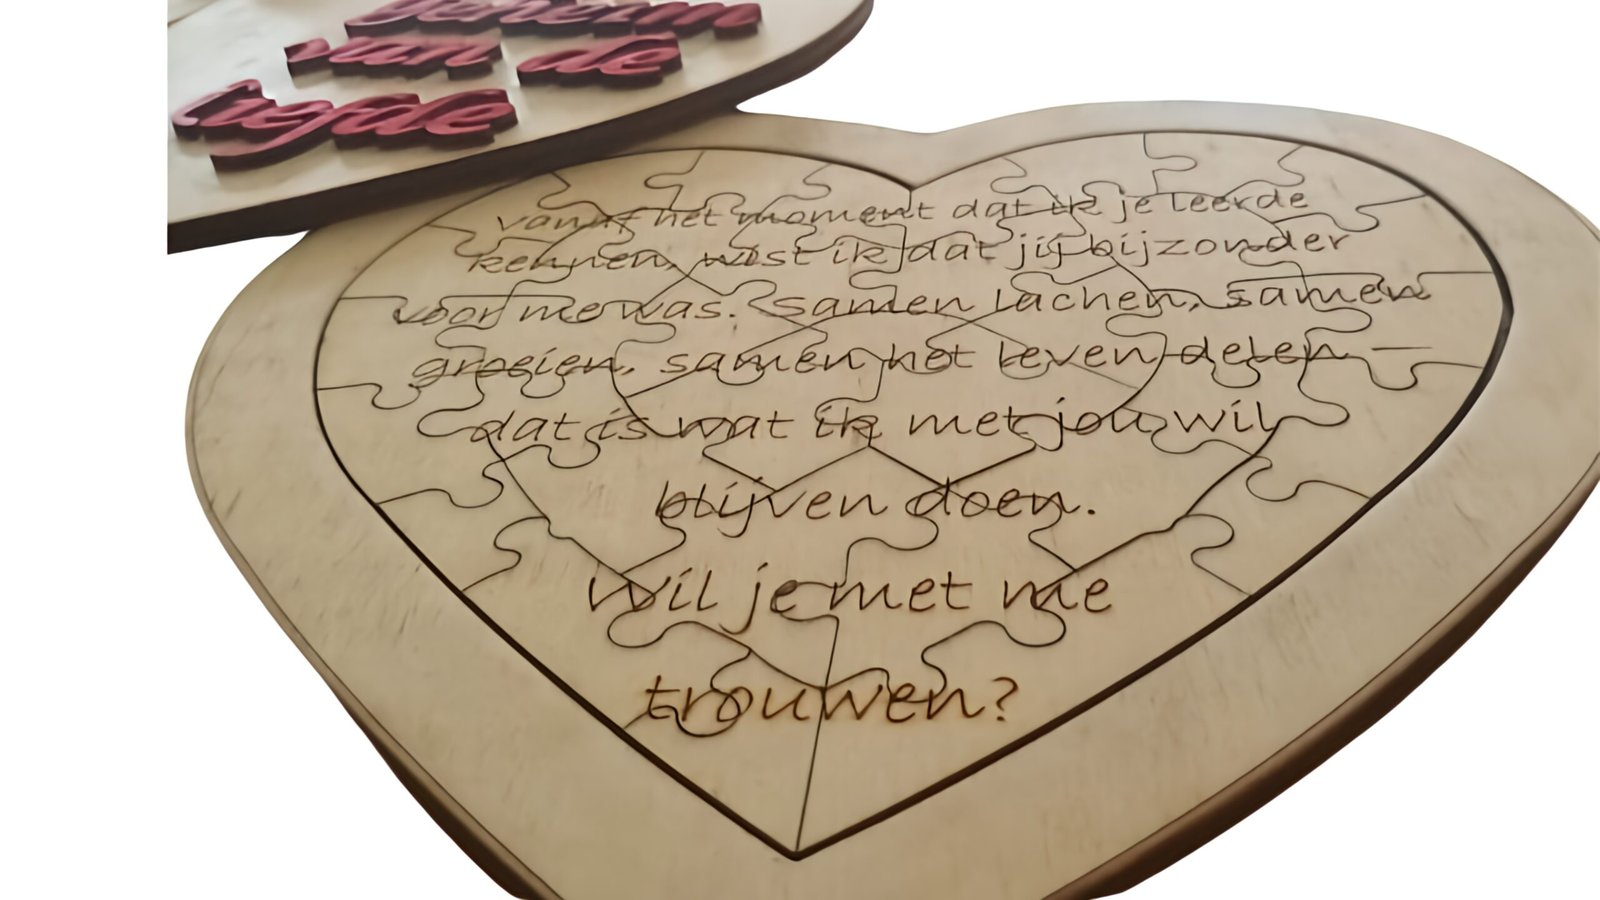 geheim
van de
liefde
vanaf het moment dat ik je leerde
kennen, wist ik dat jij bijzonder
voor me was. samen lachen, samen
groeien, samen het leven delen —
dat is wat ik met jou wil
blijven doen.
Wil je met me
trouwen?